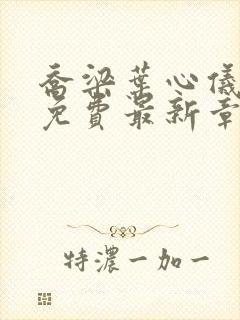 乔梁叶心仪
免费最新章
特浓一加一